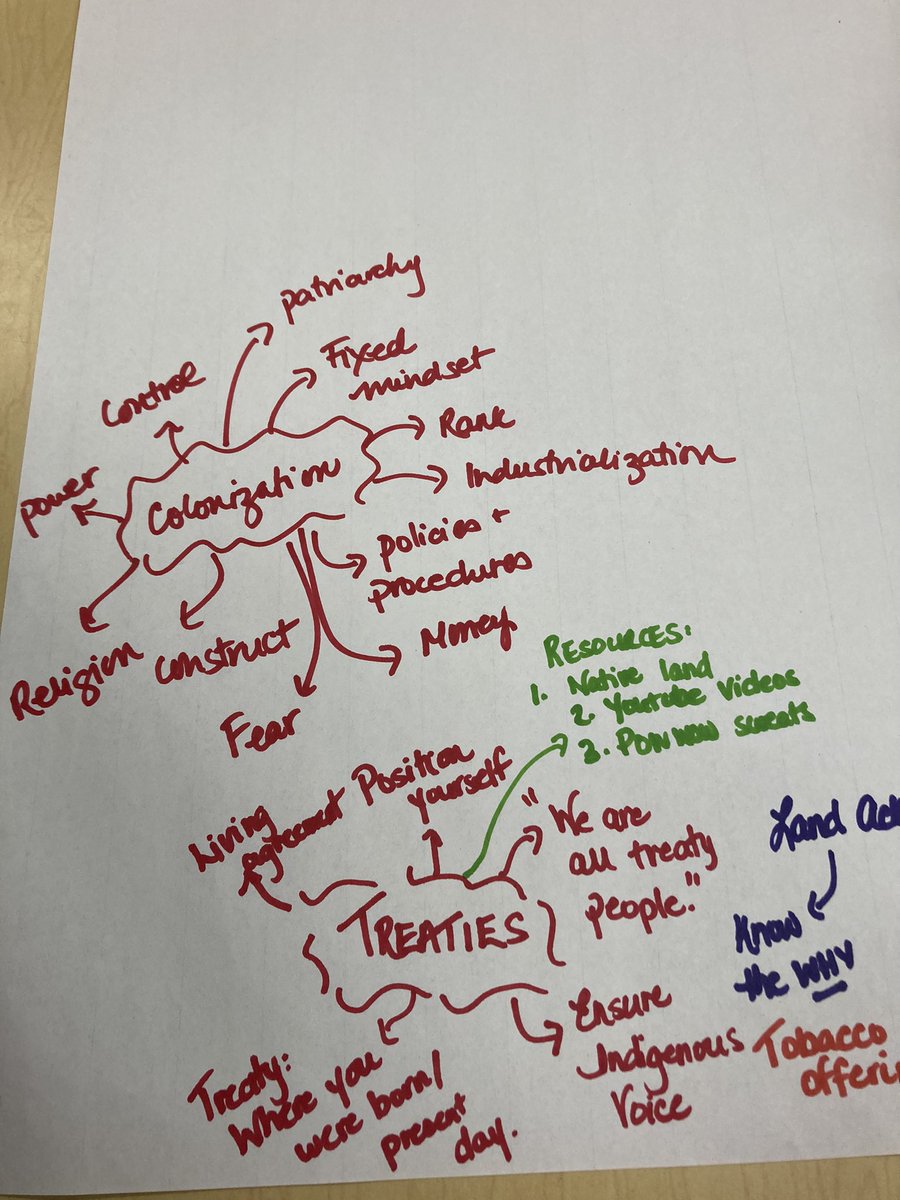 patriarchy
Fixed
mindset
Control
Rank
power
Colonization
Industrialization
policies +
procedures
Religion
Construct
Money
Fear
RESOURCES:
1. Native land
2. Youtube Videos
3. POWWOW sweats
Living
agreement
Position
yourself
"We are
all treaty
people."
TREATIES
Land Ack
Know
the WHY
Ensure
Indigenous
Voice
Tobacco
offerin
Treaty:
Where you
were born/
present
day.